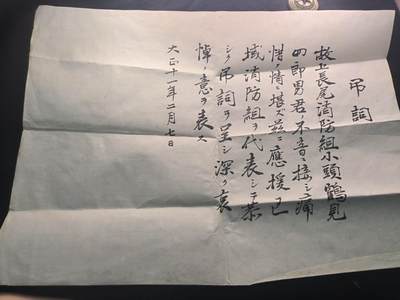 吊詞
故上長尾消防組小頭鶴見
四郎男君ノ不音ニ接シ痛
惜ノ情ニ堪ズ茲ニ應援区
域消防組ヲ代表シテ恭
シク吊詞ヲ呈シ深ク哀
悼ノ意ヲ表ス
大正十一年二月七日